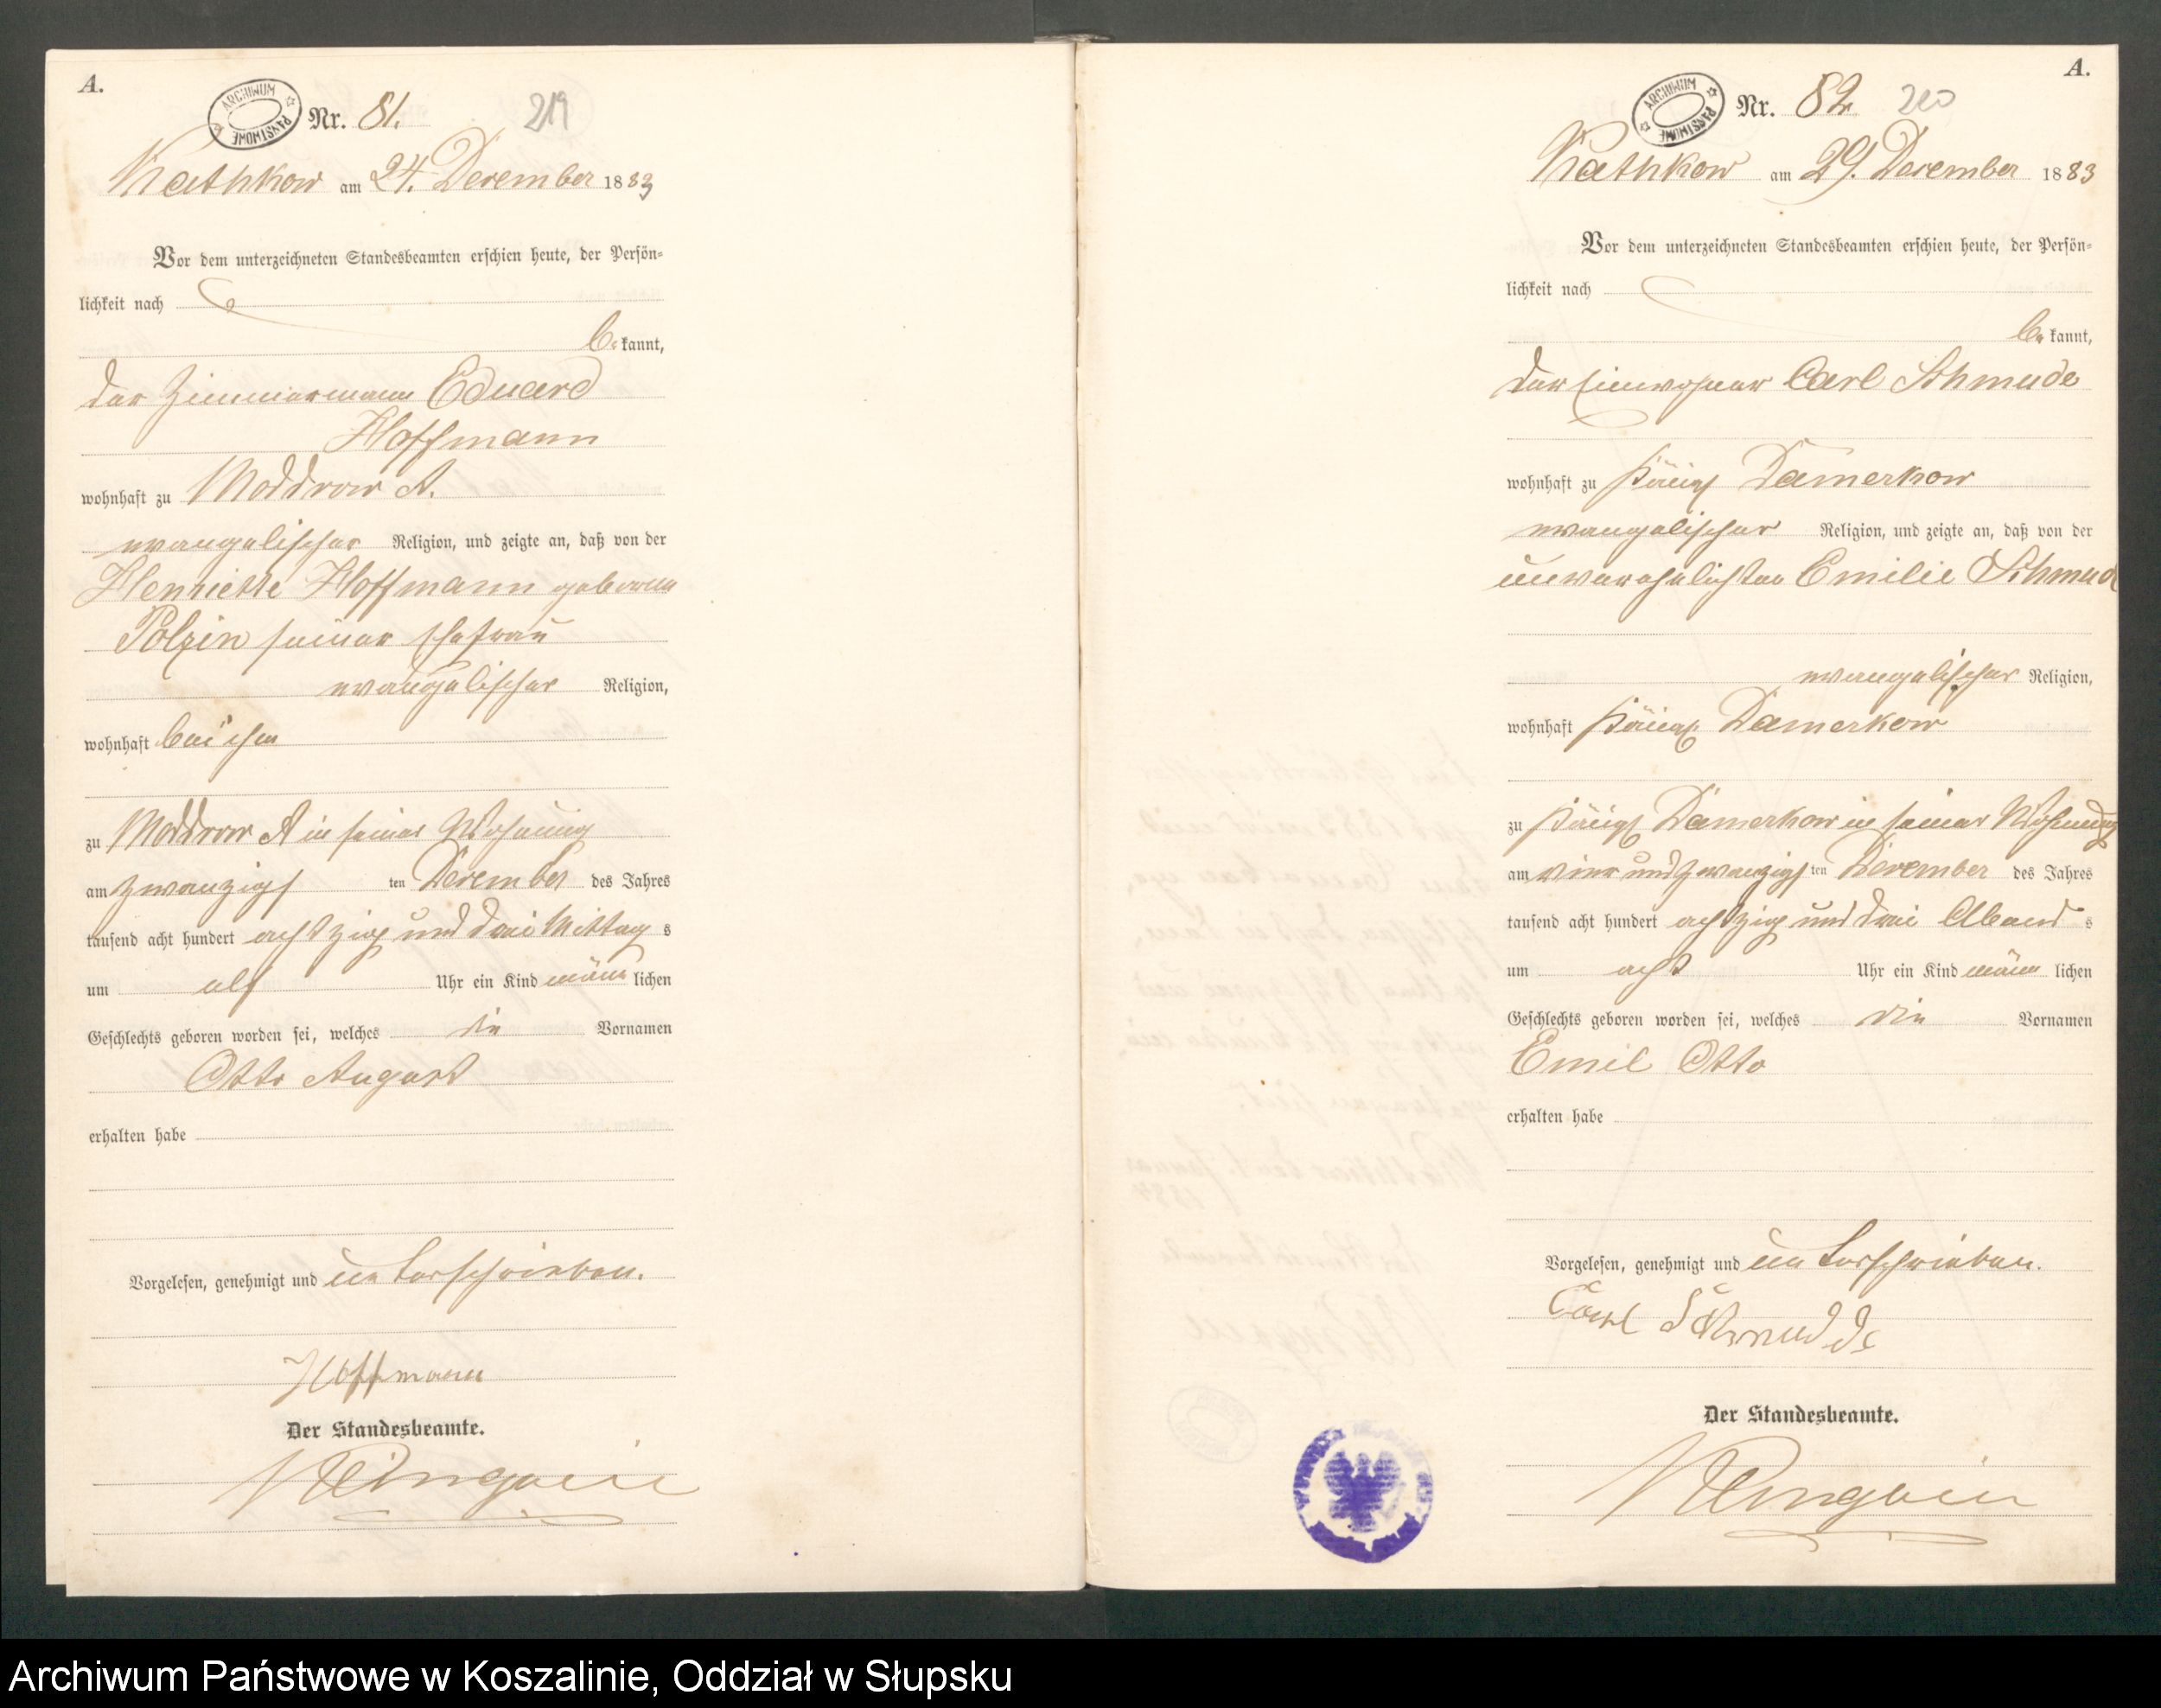 A.
ARCHIWUM PAŃSTWOWE
Nr. 81.
219
Wathkow am 24. December 1883
Vor dem unterzeichneten Standesbeamten erschien heute, der Persön-
lichkeit nach
be kannt,
der Zimmermann Eduard
Hoffmann
wohnhaft zu Moddrow A.
evangelischer Religion, und zeigte an, daß von der
Henriette Hoffmann geborene
Polzin seiner Ehefrau
evangelischer Religion,
wohnhaft bei ihm
zu Moddrow A in seiner Wohnung
am zwanzigs ten December des Jahres
tausend acht hundert achtzig und drei Mittag s
um elf Uhr ein Kind männ lichen
Geschlechts geboren worden sei, welches die Vornamen
Otto August
erhalten habe
Vorgelesen, genehmigt und unterschrieben.
Hoffmann
Der Standesbeamte.
A.
ARCHIWUM PAŃSTWOWE
Nr. 82
220
Wathkow am 29. December 1883
Vor dem unterzeichneten Standesbeamten erschien heute, der Persön-
lichkeit nach
be kannt,
der Einwohner Carl Schmude
wohnhaft zu Damerkow
evangelischer Religion, und zeigte an, daß von der
unverehelichten Emilie Schmude
evangelischer Religion,
wohnhaft Damerkow
zu Damerkow in seiner Wohnung
am vier und zwanzigs ten December des Jahres
tausend acht hundert achtzig und drei Abend s
um acht Uhr ein Kind männ lichen
Geschlechts geboren worden sei, welches die Vornamen
Emil Otto
erhalten habe
Vorgelesen, genehmigt und unterschrieben.
Carl Schmudde
Der Standesbeamte.
Archiwum Państwowe w Koszalinie, Oddział w Słupsku